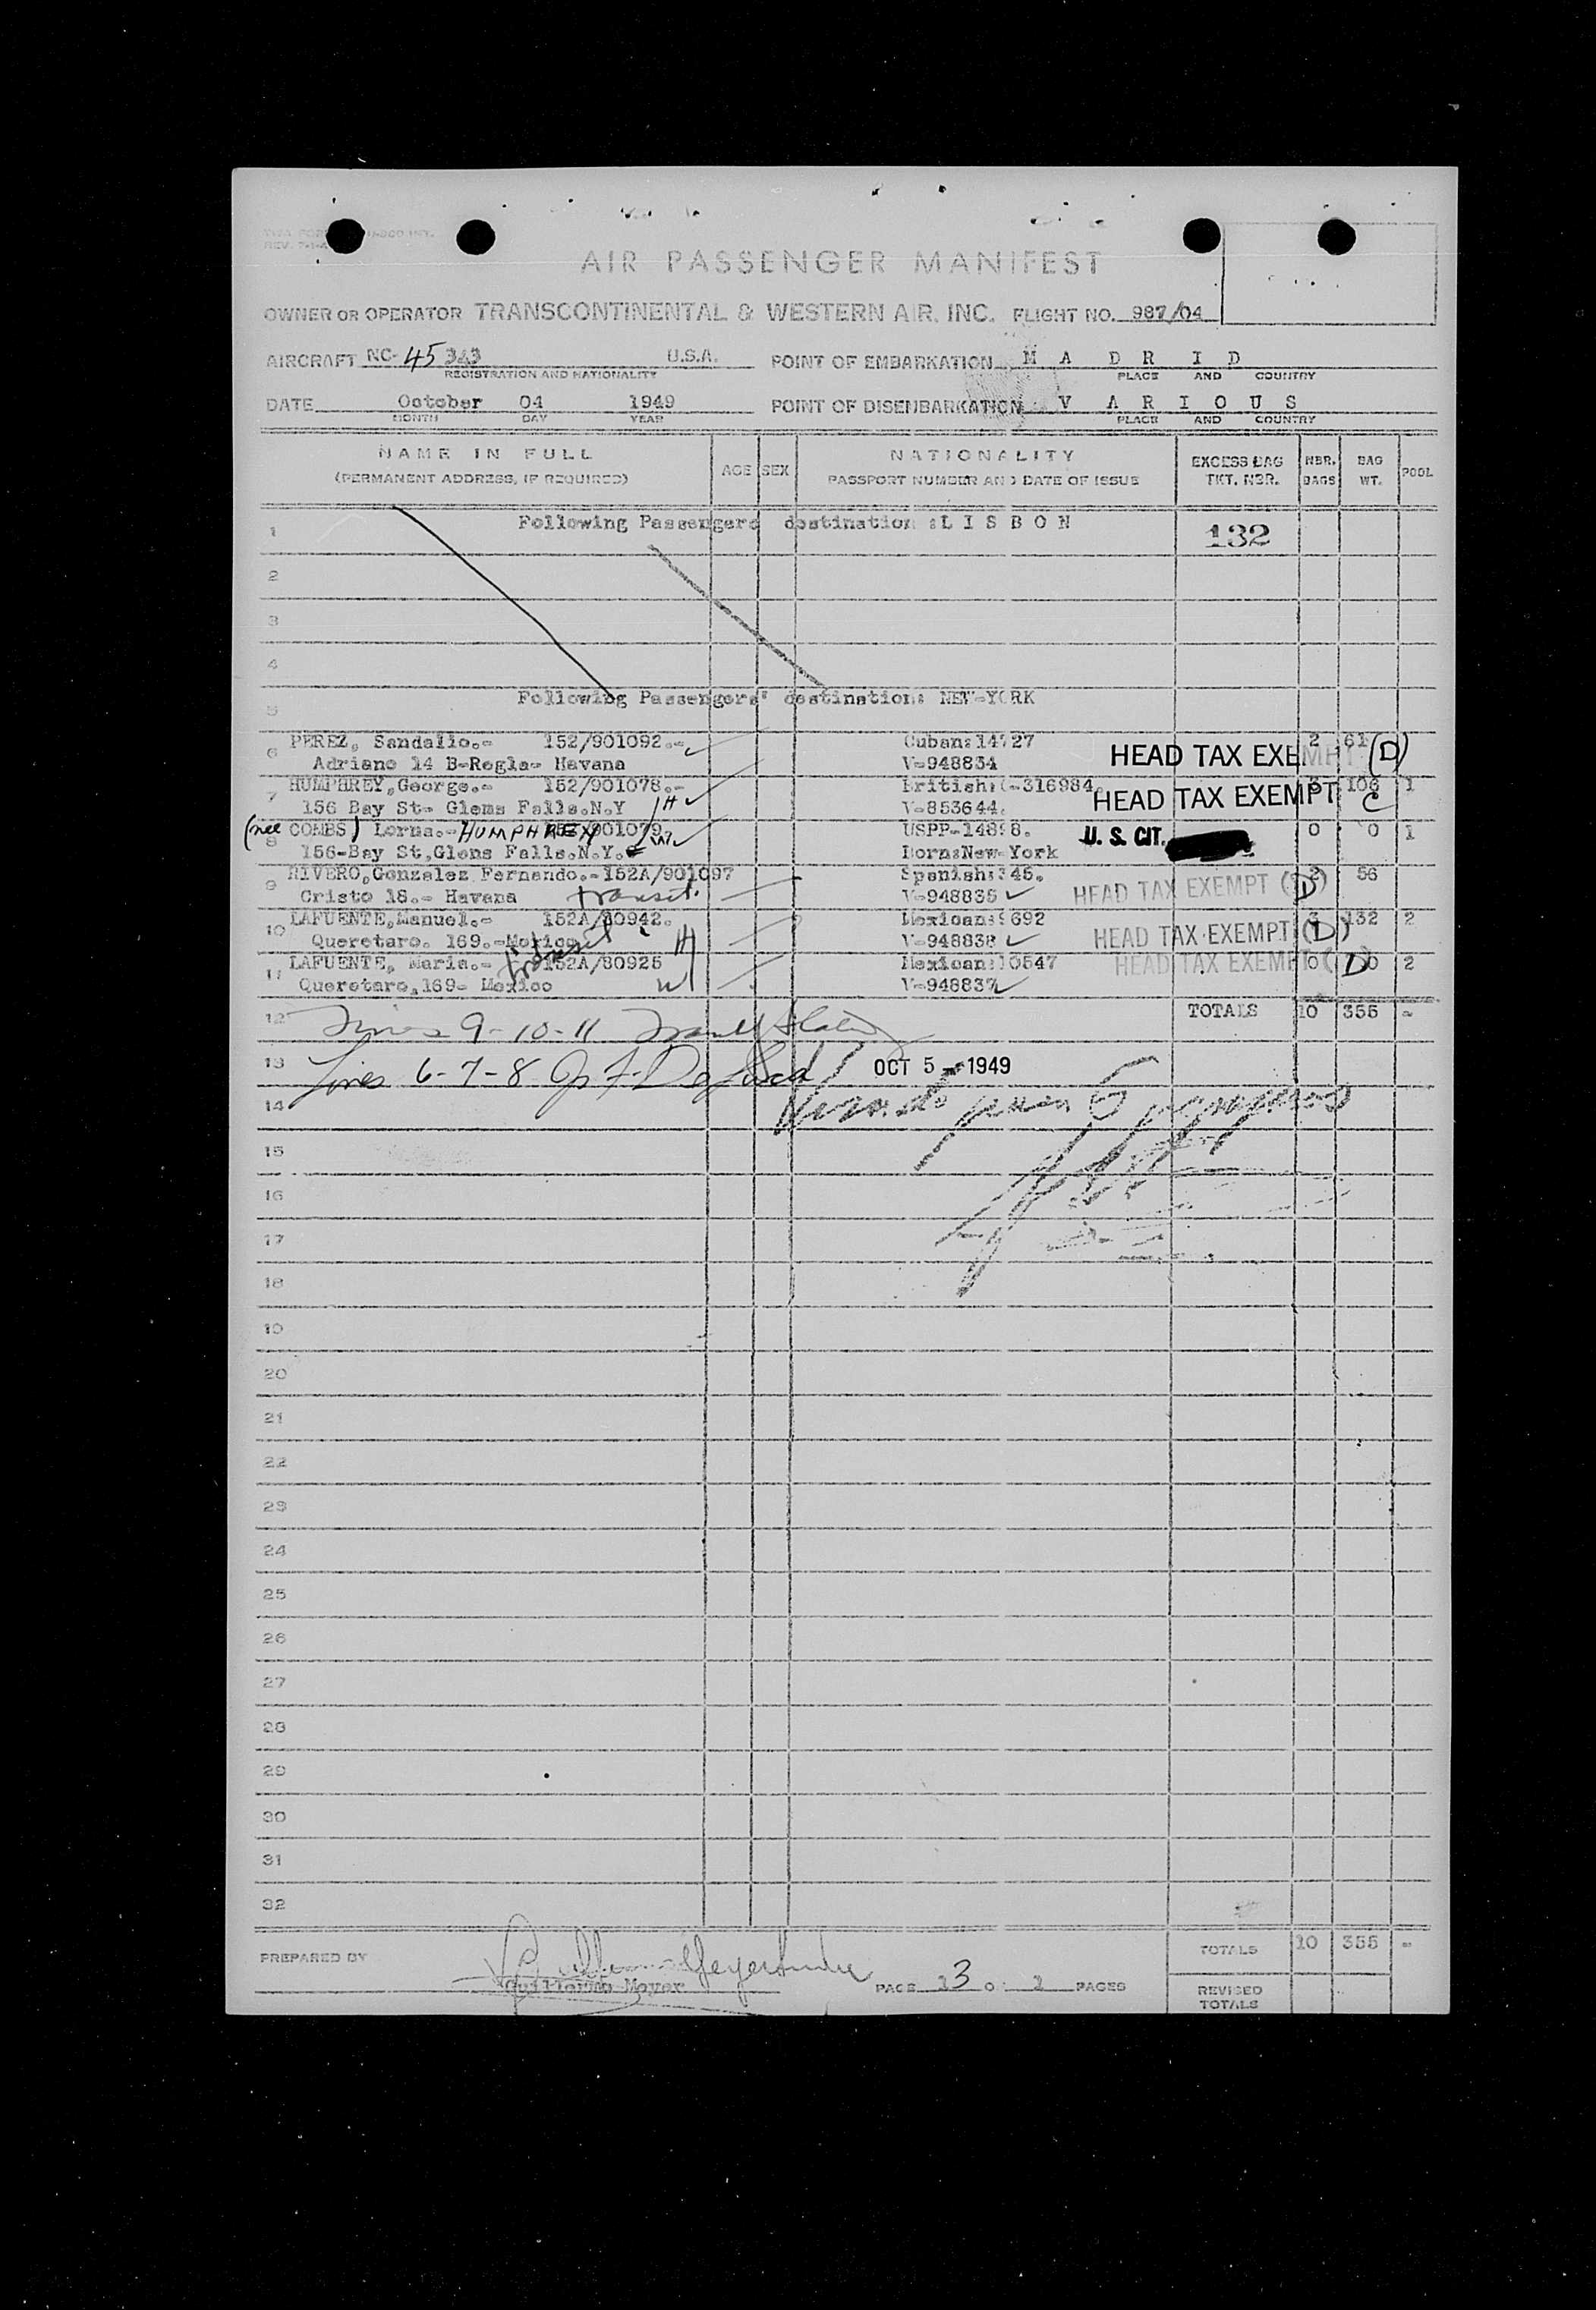 AIR PASSENGER MANIFEST
OWNER OR OPERATOR TRANSCONTINENTAL & WESTERN AIR, INC. FLIGHT NO. 987/04
AIRCRAFT NC- 45 343 U.S.A. POINT OF EMBARKATION M A D R I D
REGISTRATION AND NATIONALITY PLACE AND COUNTRY
DATE October 04 1949 POINT OF DISEMBARKATION V A R I O U S
MONTH DAY YEAR PLACE AND COUNTRY
NAME IN FULL AGE SEX NATIONALITY EXCESS BAG NBR. BAG POOL
(PERMANENT ADDRESS, IF REQUIRED) PASSPORT NUMBER AND DATE OF ISSUE TKT. NBR. BAGS WT.
1 Following Passengers destination :L I S B O N 132
2
3
4
5 Following Passengers' destination: NEW-YORK
6 PEREZ, Sandalio.- 152/901092.- Cuban: 14727 2 61
Adriano 14 B-Regla- Havana V-948834 HEAD TAX EXEMPT (D)
7 HUMPHREY,George.- 152/901078.- British: C-316984. 3 106 1
156 Bay St- Glems Falls.N.Y V-853644. HEAD TAX EXEMPT C
8 (nee COMBS) Lorna.- HUMPHREY 152/901079. USPP-14898. U. S. CIT. 0 0 1
156-Bay St,Glens Falls.N.Y. Born:New-York
9 RIVERO,Gonzalez Fernando.-152A/901097 Spanish:345. 2 56
Cristo 18.- Havana transit. V-948835 HEAD TAX EXEMPT (D)
10 LAFUENTE,Manuel.- 152A/80942. Mexican:9692 3 132 2
Queretaro. 169.-Mexico transit V-948838 HEAD TAX EXEMPT (D)
11 LAFUENTE, Maria.- 152A/80925 Mexican:10547 HEAD TAX EXEMPT (D) 0 0 2
Queretaro,169- Mexico V-948837
12 Lines 9-10-11 TOTALS 10 355 -
13 Lines 6-7-8 OCT 5 - 1949
14
15
16
17
18
19
20
21
22
23
24
25
26
27
28
29
30
31
32
PREPARED BY TOTALS 10 355 -
Guillermo Meyer PAGE 3 OF 2 PAGES REVISED
TOTALS